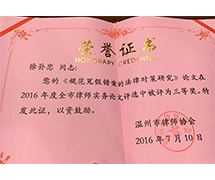 荣誉证书
HONORARY CREDENTIAL
徐孙忠 同志:
您的《规范冤假错案的法律对策研究》论文在
2016年度全市律师实务论文评选中被评为三等奖。特
发此证，以资鼓励。
温州市律师协会
2016年7月10日